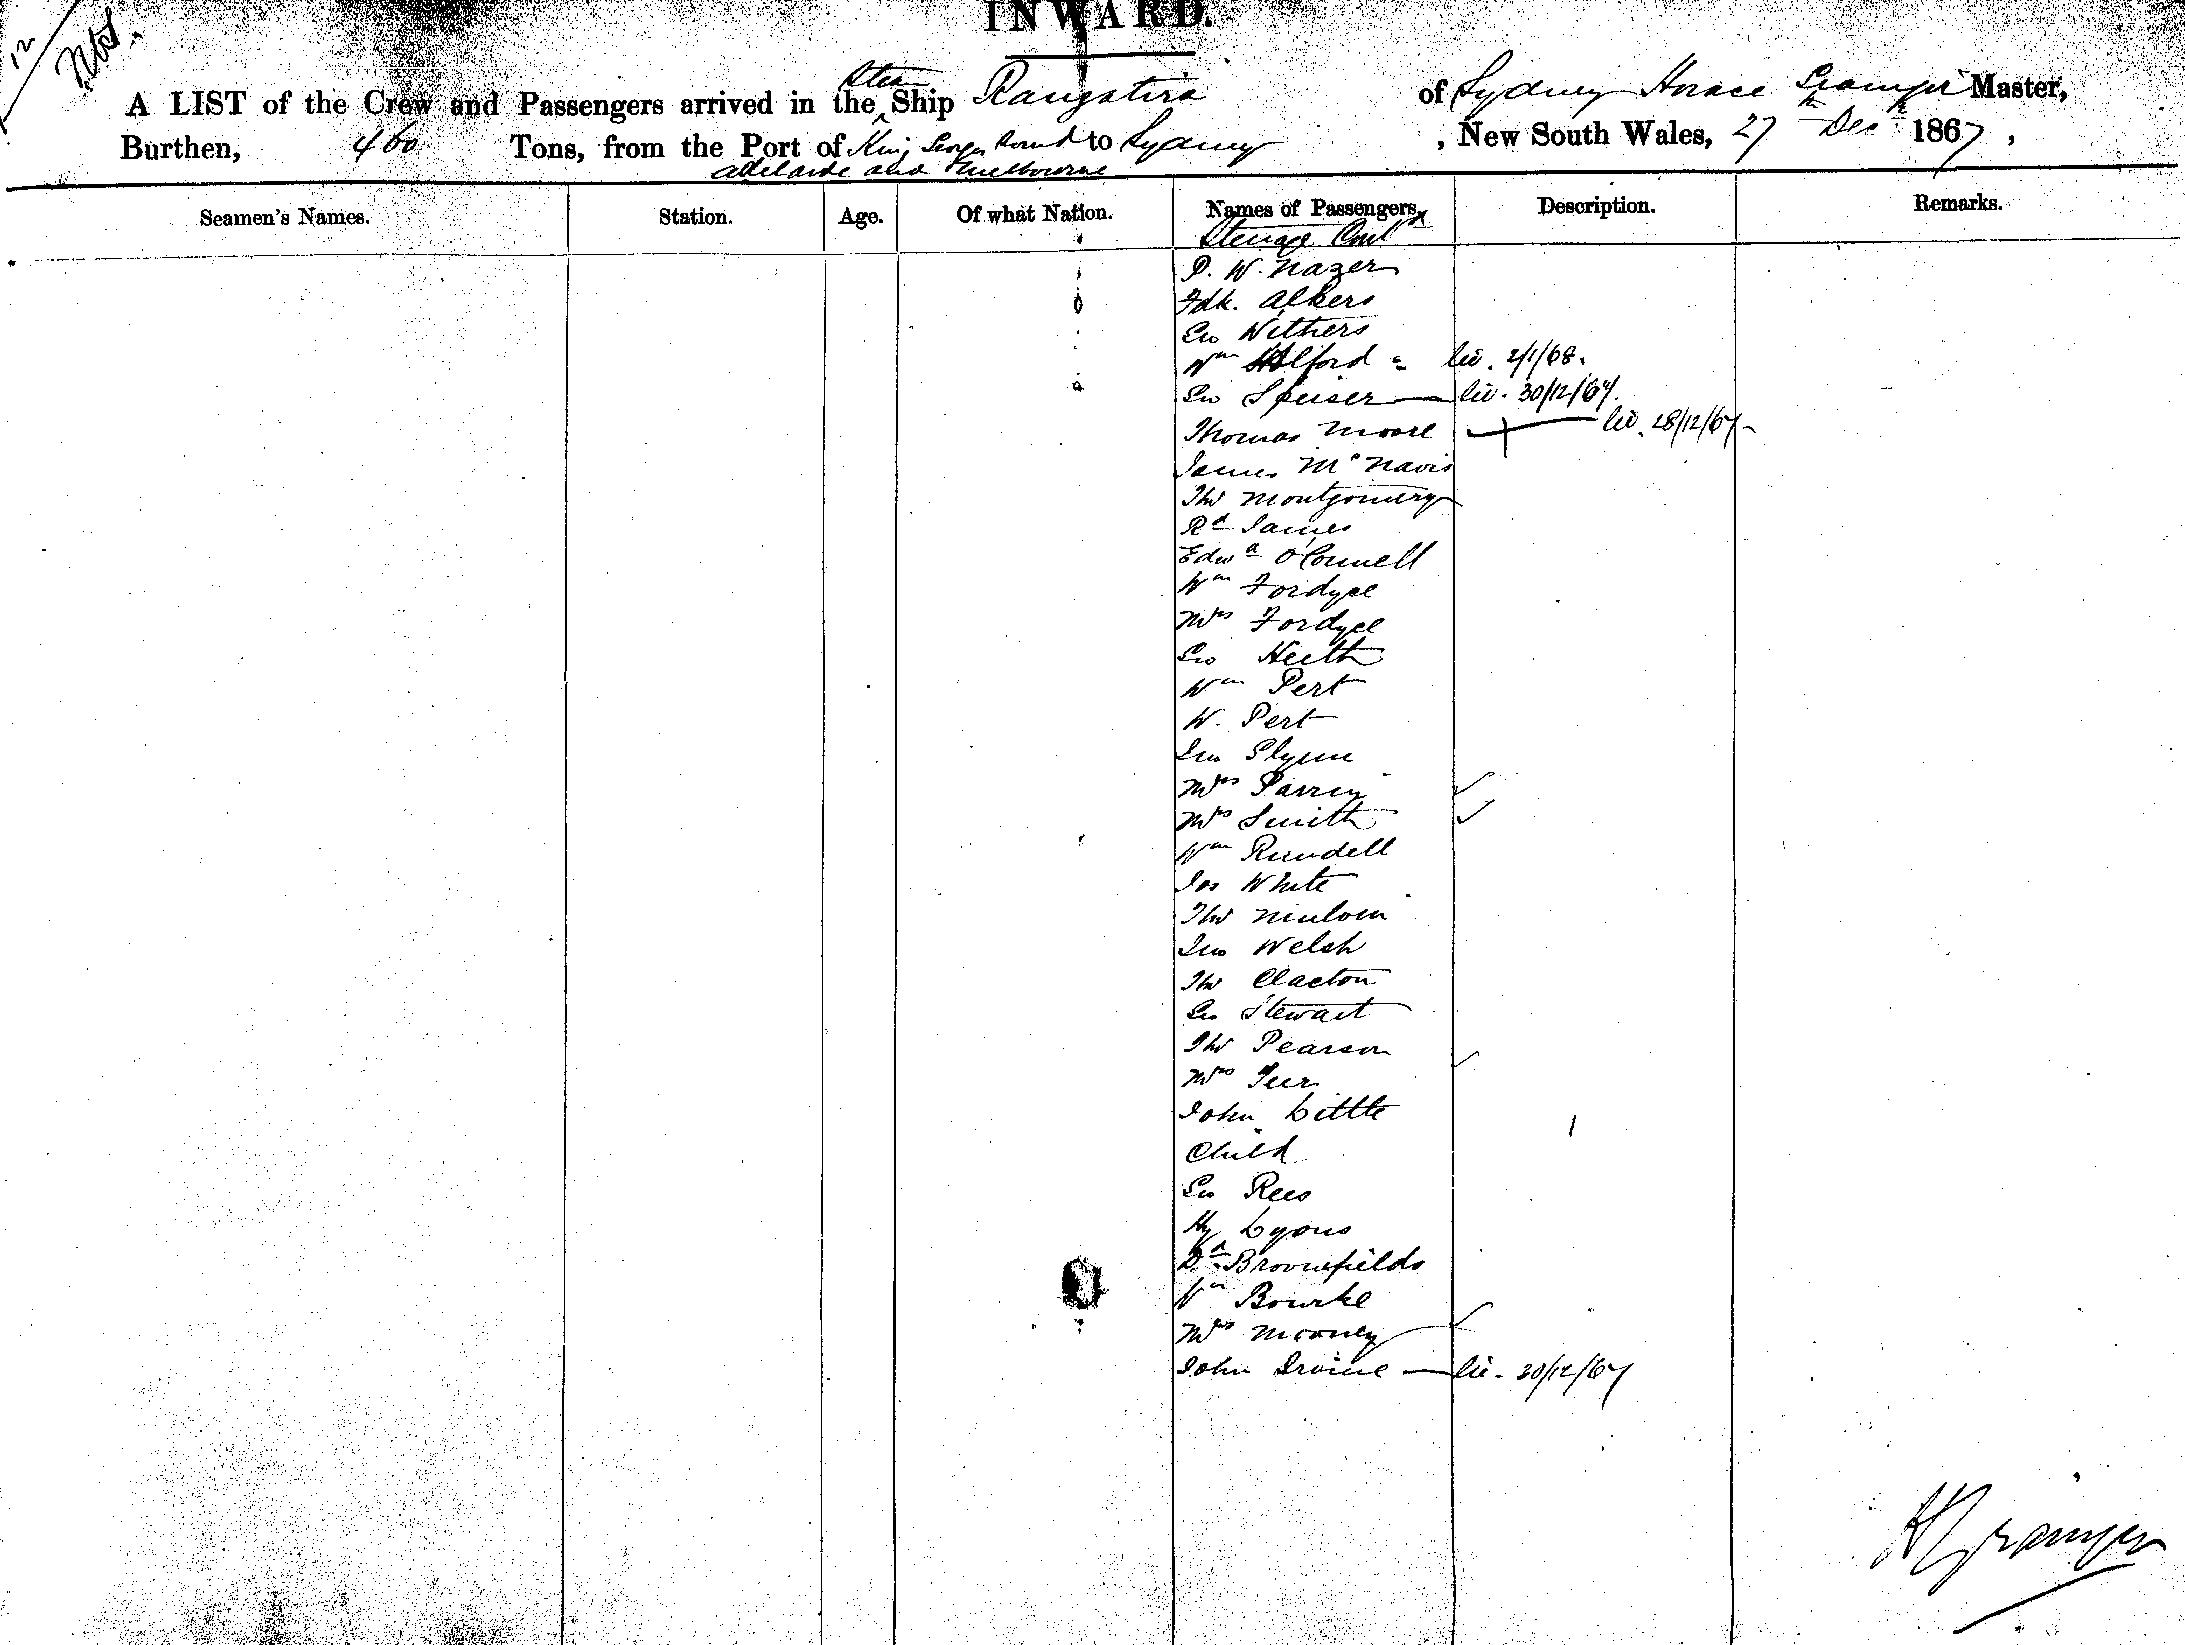 INWARD.
A LIST of the Crew and Passengers arrived in the Steam Ship Rangatira of Sydney Horace Grainger Master,
Burthen, 460 Tons, from the Port of King Georges Sound to Sydney, New South Wales, 27th Dec 1867,
Adelaide and Melbourne
Seamen's Names. Station. Age. Of what Nation. Names of Passengers, Description. Remarks.
Steerage Contd
P. W. Nazer
Fdk. Albers
Geo Withers
Wm Halford lic. 2/1/68.
Geo Speiser — lic. 30/12/67.
Thomas Moore lic. 28/12/67
James McNavis
Thos Montgomery
Rd James
Edwd O'Connell
Wm Fordyce
Mrs Fordyce
Geo Heith
Wm Pert
W. Pert
Jno Flynn
Mrs
Mrs Smith
Wm Rundell
Jos White
Thos
Jno Welsh
Thos Clacton
Geo Stewart
Thos Pearson
Mrs
John Little
Child
Geo Rees
Hy Lyons
Dd Brownfields
Wm Bourke
Mrs Mooney
John Irvine — lic. 30/12/67
H Grainger